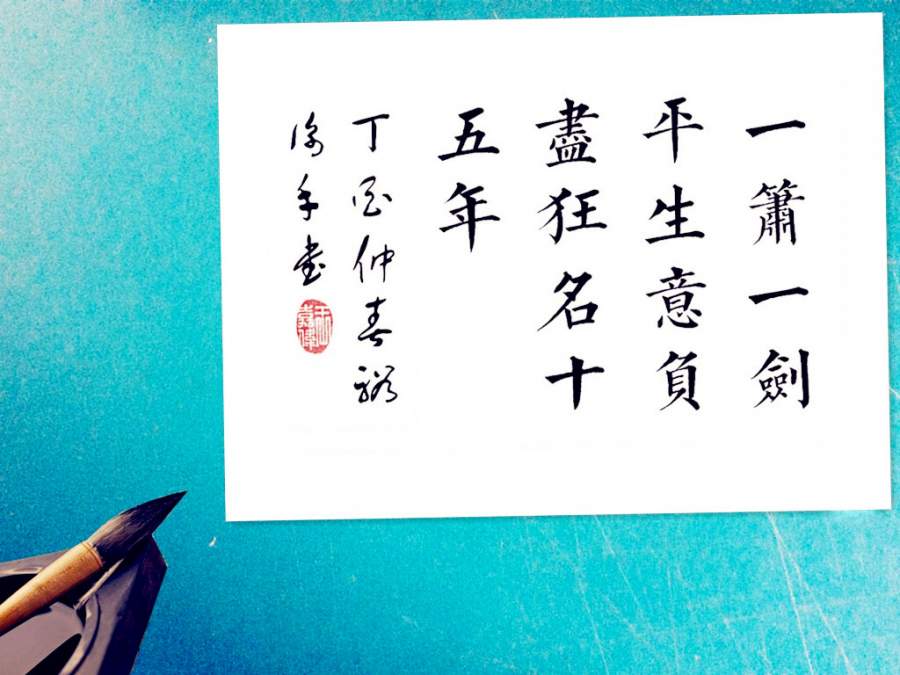 一簫一劍
平生意負
盡狂名十
五年
丁酉仲春
手書